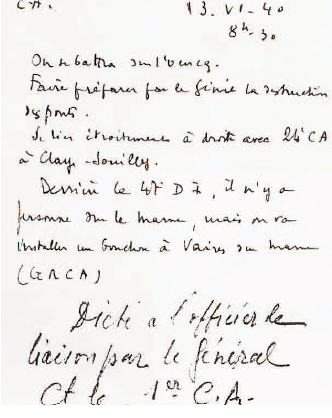 C.A. 13. VI - 40
8h - 30
On se battra sur l'Ourcq.
Faire préparer par le Génie la destruction
des ponts.
Se lier étroitement à droite avec 24e CA
à Claye-Souilly.
Derrière la 47e D I, il n'y a
personne sur la Marne, mais on va
installer un bouchon à Vaires sur Marne
(GRCA)
Dicté à l'officier de
liaison par le Général
Ct le 1er C.A.